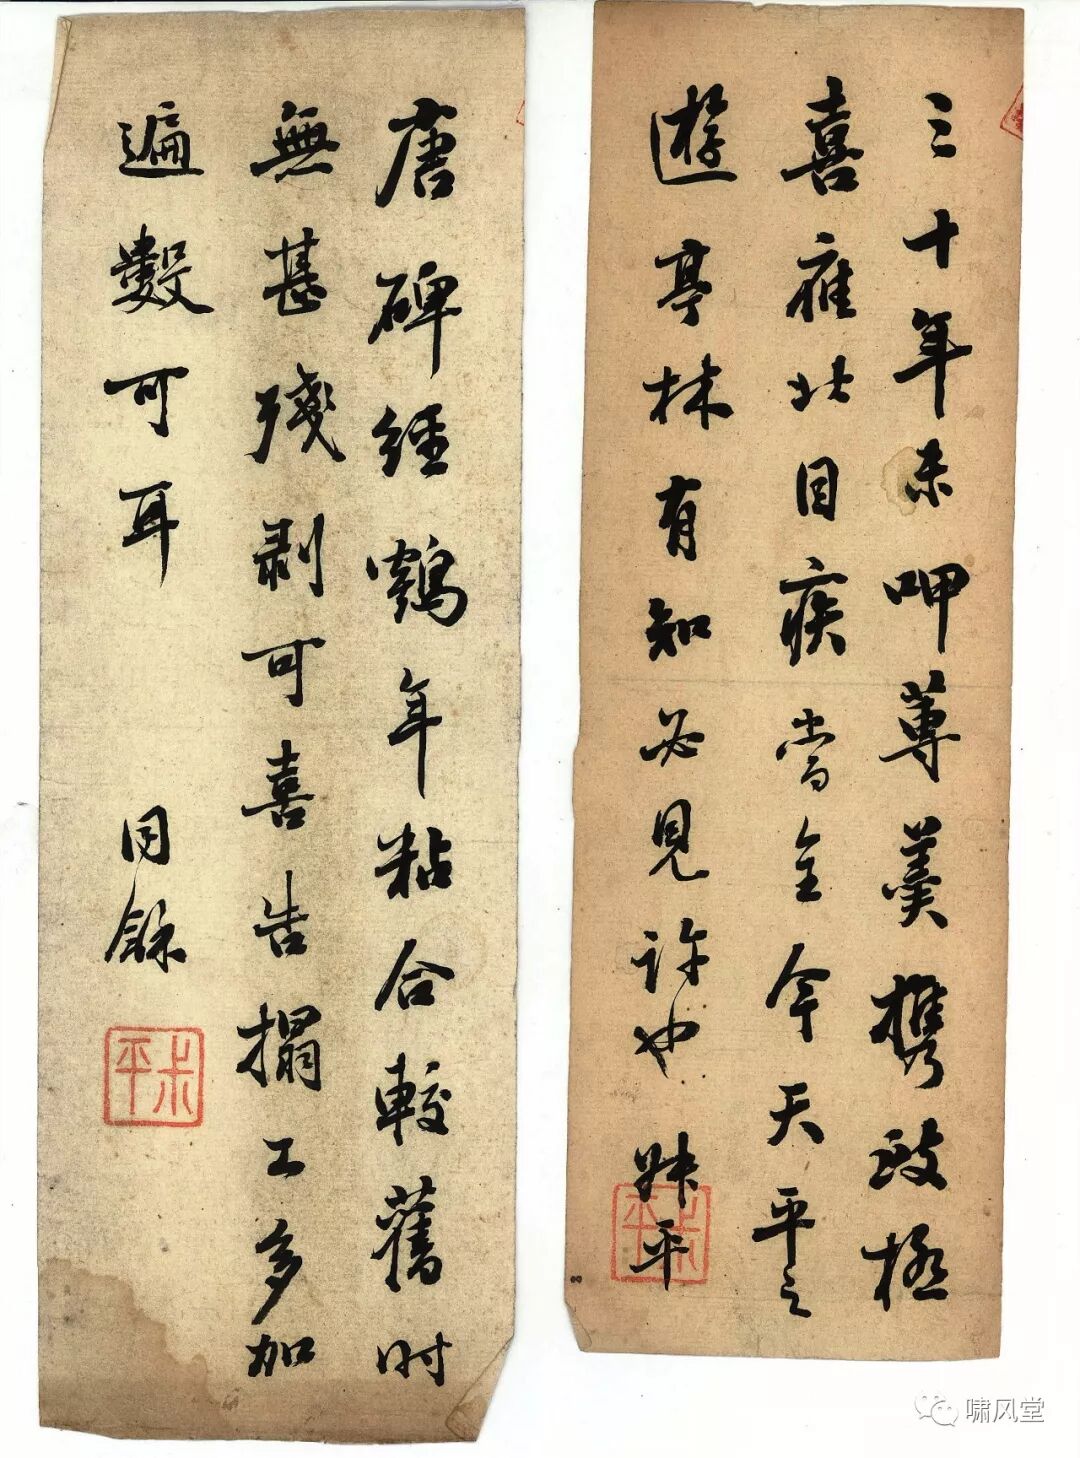 三十年未呷蓴羹携致極
喜雇北目疾當全今天平之
遊亭林有知必見許也 叔平
唐碑經鶴年粘合較舊時
無甚殘剥可喜告搨工多加
遍數可耳
同龢
叔平
啸风堂